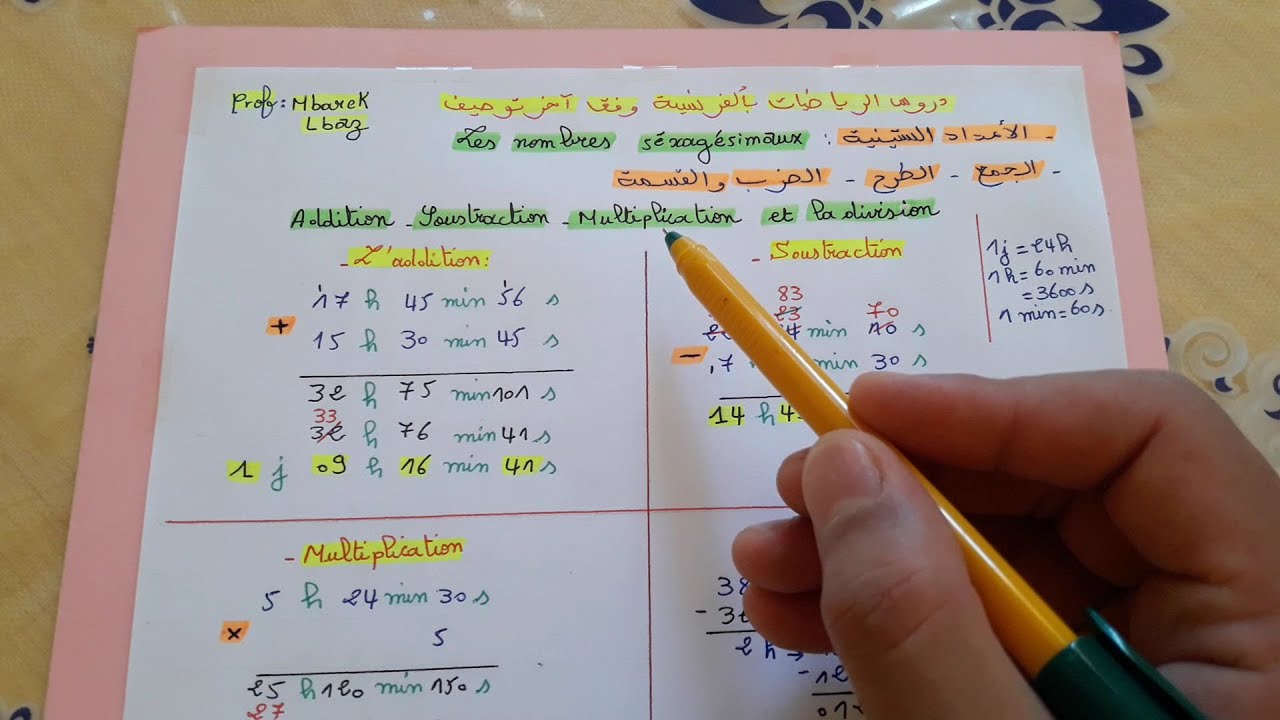 Prof: Mbarek
Lbaz
دروس الرياضيات بالفرنسية وفق آخر توصيف
- الأعداد الستينية : Les nombres séxagésimaux
- الجمع - الطرح - الضرب والقسمة
Addition - Soustraction - Multiplication et la division
- L'addition:
1 1
17 h 45 min 56 s
+
15 h 30 min 45 s
32 h 75 min 101 s
33
32 h 76 min 41 s
1 j 09 h 16 min 41 s
- Soustraction
83
23 70
22 min 10 s
-
7 min 30 s
14 h 4
1j = 24h
1h = 60 min
= 3600 s
1 min = 60 s
- Multiplication
5 h 24 min 30 s
x
5
25 h 120 min 150 s
27
38
- 3
2 h →
- 12
01